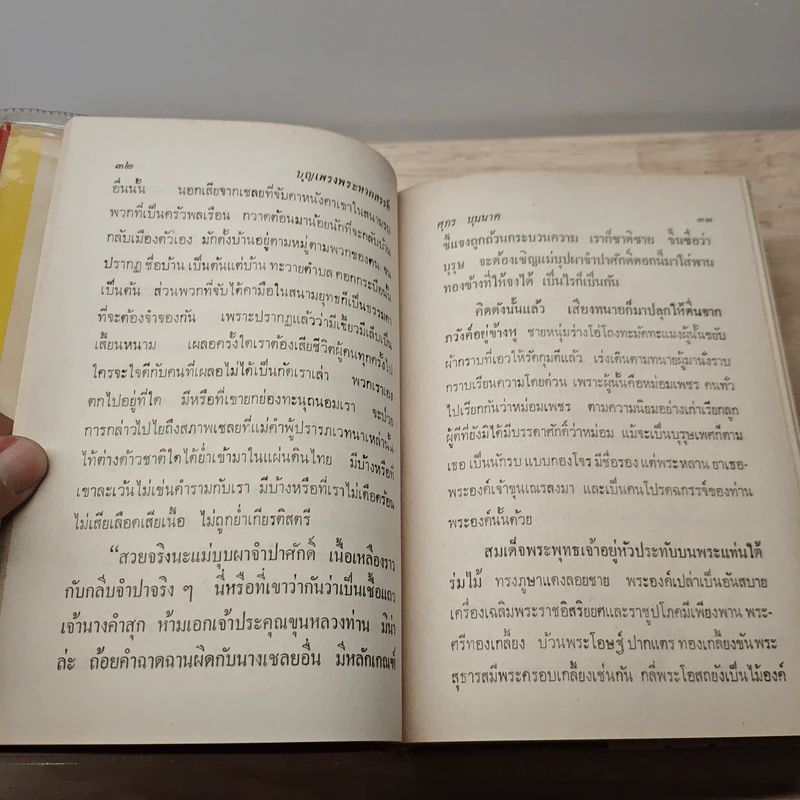 ๓๒
บุญเพรงพระหากสรรค์
อื่นนั้น นอกเสียจากเชลยที่จับคาหนังคาเขาในสนามรบ
พวกที่เป็นครัวพลเรือน กวาดต้อนมาน้อยนักที่จะกลับบ้าน
กลับเมืองตัวเอง มักตั้งบ้านอยู่ตามหมู่ตามพวกของตน จน
ปรากฏ ชื่อบ้าน เป็นต้นแต่บ้าน ทะวายตำบล คอกกระบือนั้น
เป็นต้น ส่วนพวกที่จับได้คามือในสนามยุทธก็เป็นธรรมดา
ที่จะต้องจำจองกัน เพราะปรากฏแล้วว่ามีเขี้ยวมีเล็บเป็น
เสี้ยนหนาม เผลอครั้งใดเราต้องเสียชีวิตผู้คนทุกครั้งไป
ใครจะใจดีกับคนที่เผลอไม่ได้เป็นกัดเราเล่า พวกเราเอง
ตกไปอยู่ที่ใด มีหรือที่เขายกย่องทะนุถนอมเรา จะป่วย
การกล่าวไปไยถึงสภาพเชลยที่แม่คำผู้ปรารภเวทนาเหล่านั้น
ไท้ต่างด้าวชาติใดได้ย่ำเข้ามาในแผ่นดินไทย มีบ้างหรือที่
เขาละเว้นไม่เข่นคำรามกับเรา มีบ้างหรือที่เราไม่เดือดร้อน
ไม่เสียเลือดเสียเนื้อ ไม่ถูกย่ำเกียรติสตรี
“สวยจริงนะแม่บุบผาจำปาศักดิ์ เนื้อเหลืองราว
กับกลีบจำปาจริง ๆ นี่หรือที่เขาว่ากันว่าเป็นเชื้อแถว
เจ้านางคำสุก ห้ามเอกเจ้าประคุณขุนหลวงท่าน มิน่า
ล่ะ ถ้อยคำฉาดฉานผิดกับนางเชลยอื่น มีหลักเกณฑ์
ศุภร บุนนาค
๓๓
ชี้แจงถูกถ้วนกระบวนความ เราก็ชาติชาย ขึ้นชื่อว่า
บุรุษ จะต้องเชิญแม่บุปผาจำปาศักดิ์ดอกนี้มาใส่พาน
ทองข้างที่ให้จงได้ เป็นไรก็เป็นกัน
คิดดังนั้นแล้ว เสียงทนายก็มาปลุกให้ตื่นจาก
ภวังค์อยู่ข้างหู ชายหนุ่มร่างโอ่โถงทะมัดทะแมงผู้นั้นขยับ
ผ้ากราบที่เอวให้รัดกุมดีแล้ว เร่งเดินตามทนายผู้มานั่งราบ
กราบเรียนความโดยด่วน เพราะผู้นั้นคือหม่อมเพชร คนทั่ว
ไปเรียกกันว่าหม่อมเพชร ตามความนิยมอย่างเก่าเรียกลูก
ผู้ดีที่ยังมิได้มีบรรดาศักดิ์ว่าหม่อม แม้จะเป็นบุรุษเพศก็ตาม
เธอ เป็นนักรบ แบบกองโจร มีชื่อรอง แต่พระหลาน ยาเธอ-
พระองค์เจ้าขุนเณรลงมา และเป็นคนโปรดฉกรรจ์ของท่าน
พระองค์นั้นด้วย
สมเด็จพระพุทธเจ้าอยู่หัวประทับบนพระแท่นใต้
ร่มไม้ ทรงภูษาแดงลอยชาย พระองค์เปล่าเป็นอันสบาย
เครื่องเฉลิมพระราชอิสริยยศและราชูปโภคมีเพียงพาน พระ-
ศรีทองเกลี้ยง บ้วนพระโอษฐ์ ปากแตร ทองเกลี้ยงขันพระ
สุธารสมีพระครอบเกลี้ยงเช่นกัน กลี่พระโอสถยังเป็นไม้องค์